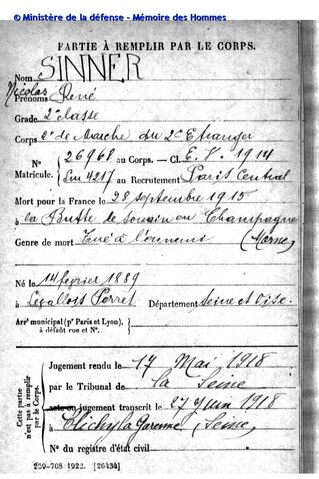 © Ministère de la défense - Mémoire des Hommes
PARTIE À REMPLIR PAR LE CORPS.
Nom SINNER
Prénoms Nicolas René
Grade 2e classe
Corps 2e de Marche du 2e Etranger
N° 26968 au Corps. — Cl. E. V. 1914
Matricule. Lm 4217 au Recrutement Paris Central
Mort pour la France le 28 septembre 1915
à la Butte de Souain en Champagne
Genre de mort Tué à l'ennemi (Marne)
Né le 14 février 1889
à Levallois Perret Département Seine et Oise.
Arrt municipal (pr Paris et Lyon),
à défaut rue et N°.
Cette partie n'est pas à remplir par le Corps.
Jugement rendu le 17 Mai 1918
par le Tribunal de la Seine
acte ou jugement transcrit le 27 juin 1918
à Clichy la Garenne (Seine)
N° du registre d'état civil
269-708 1922. [26434]